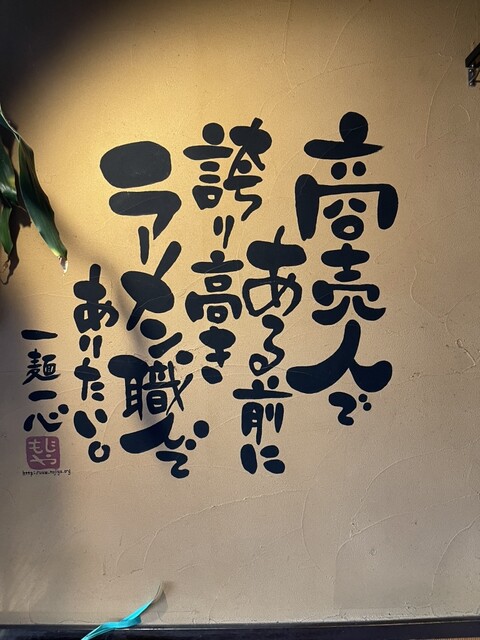 商売人で
ある前に
誇り高き
ラーメン職人で
ありたい。
一麺一心
もじや